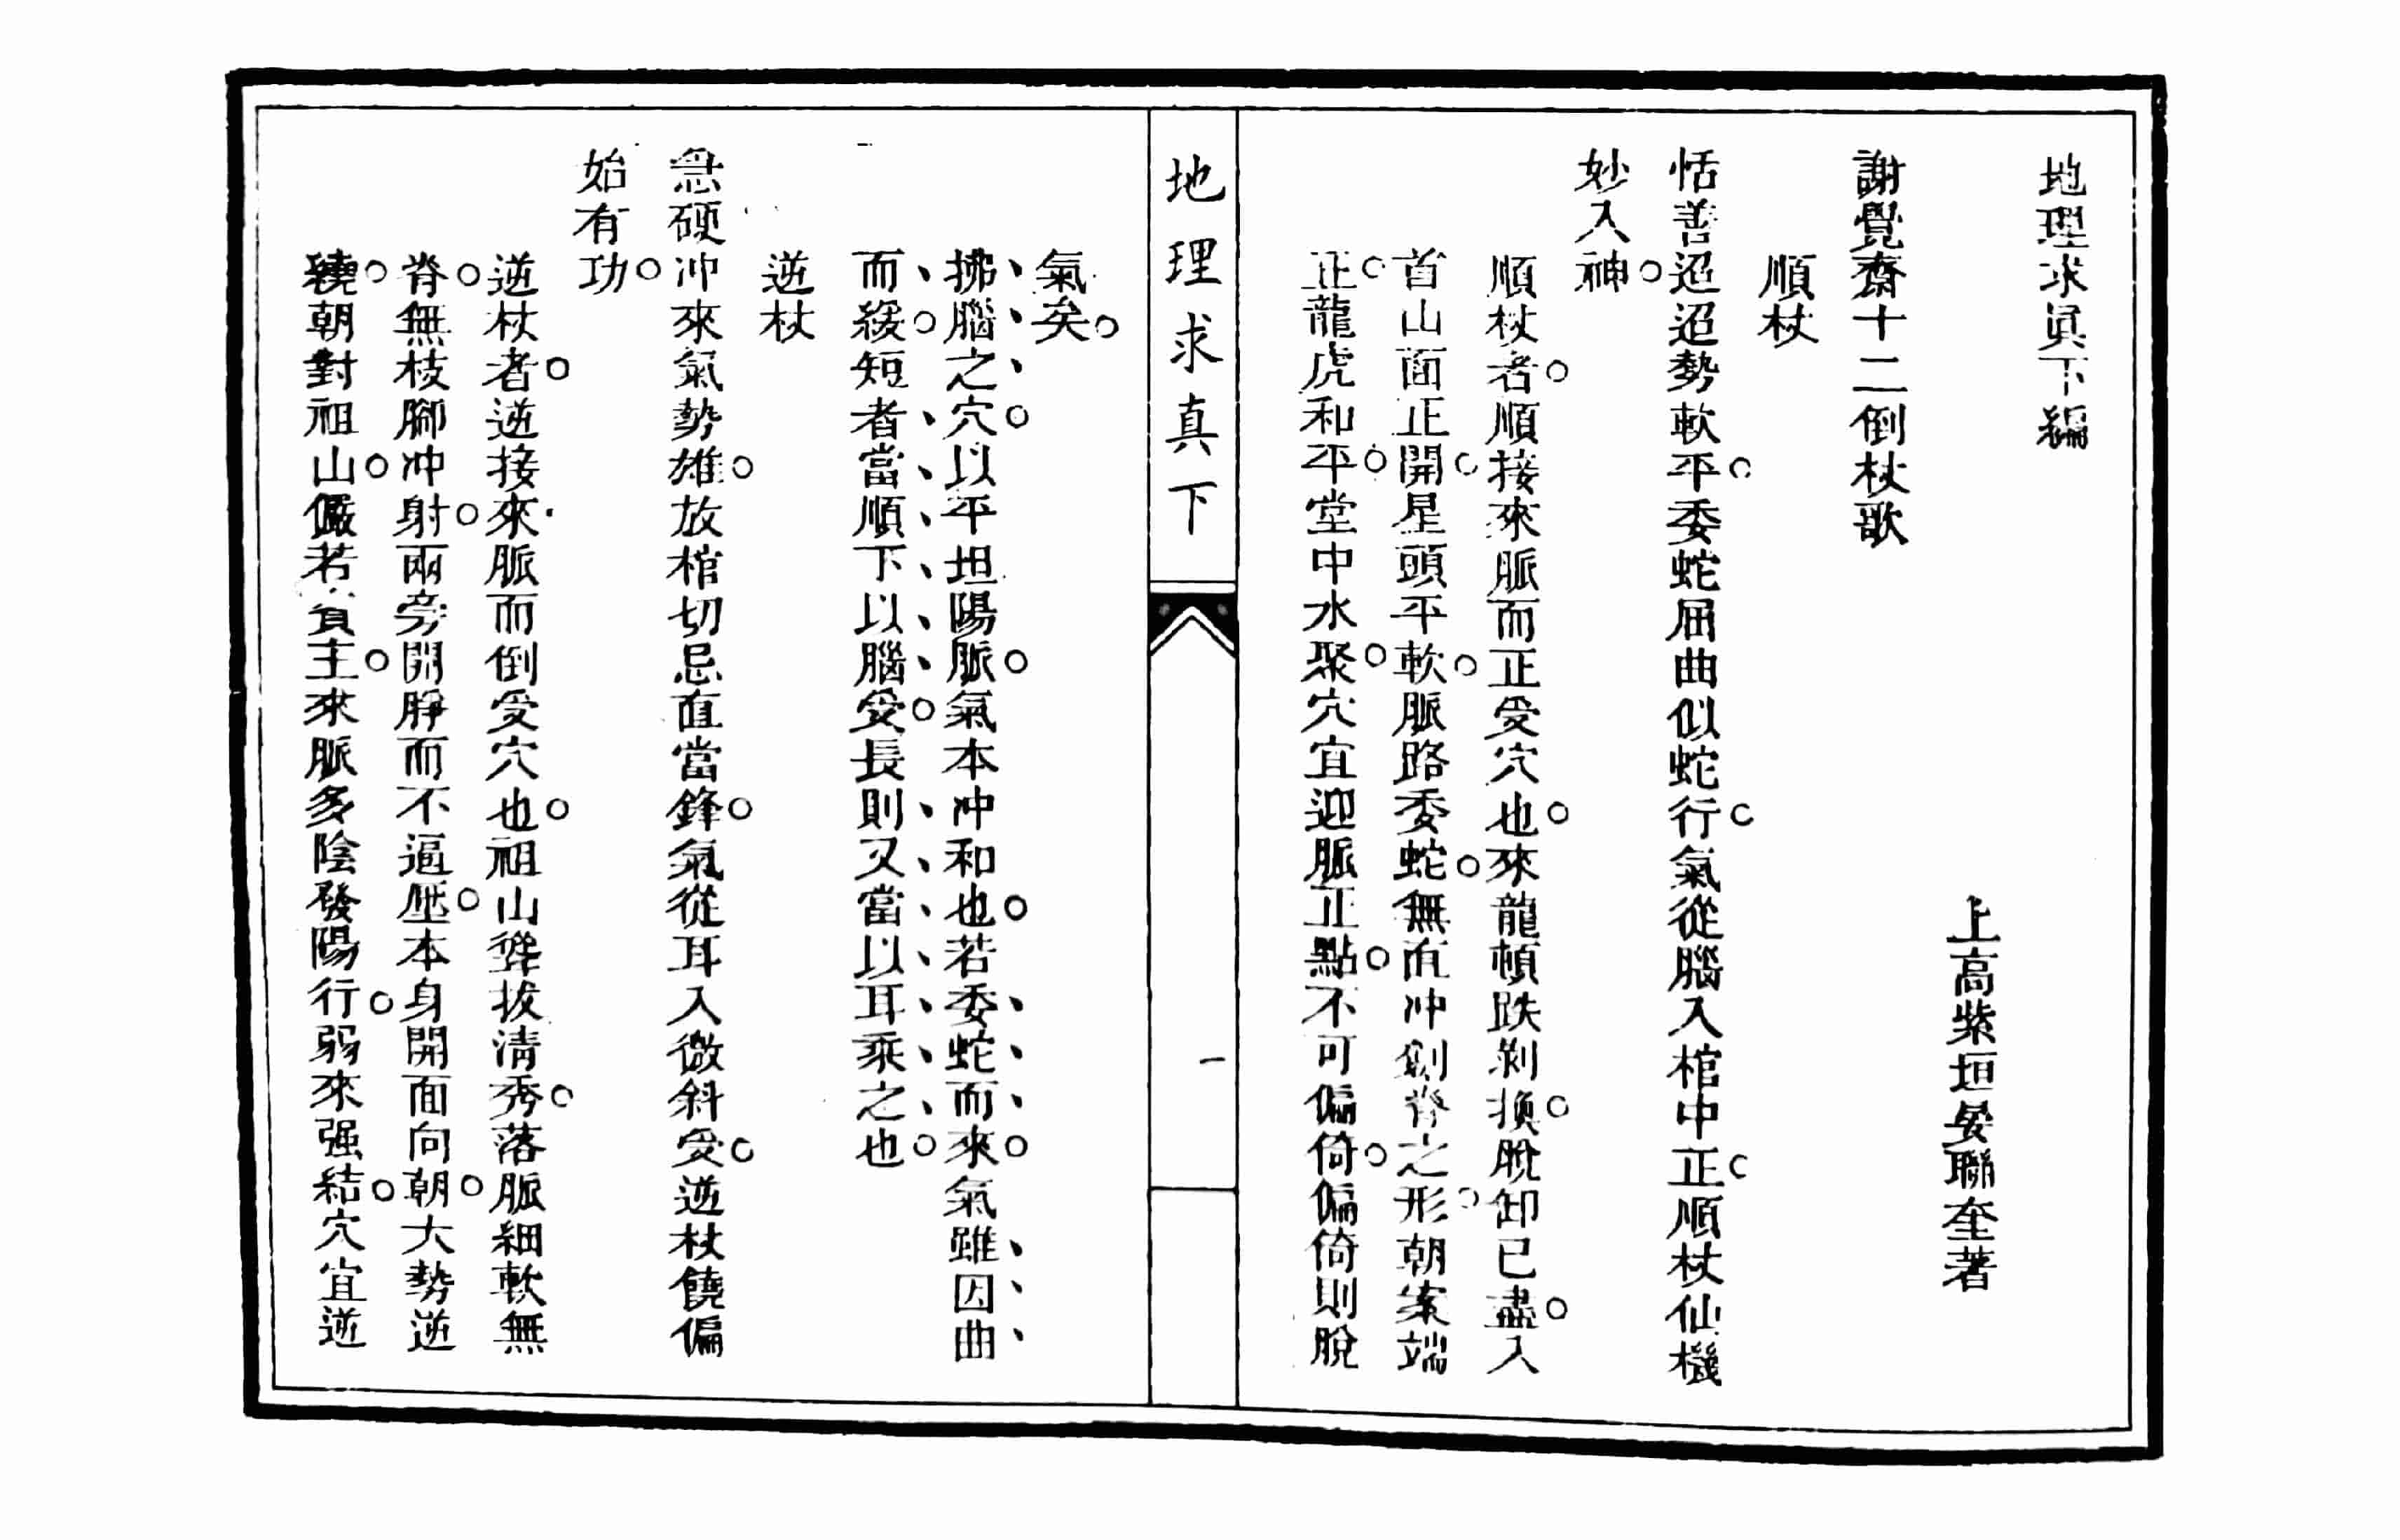 地理求真下編
上高紫垣晏聯奎著
謝覺齋十二倒杖歌
順杖
恬善迢迢勢軟平。委蛇屈曲似蛇行。氣從腦入棺中正。順杖仙機
妙入神。
順杖者。順接來脈而正受穴也。來龍頓跌剝換。脫卸已盡。入
首山面正開。星頭平軟。脈路委蛇。無直冲劍脊之形。朝案端
正。龍虎和平。堂中水聚。穴宜迎脈正點。不可偏倚。偏倚則脫
地理求真下
一
氣矣。
拂腦之穴。以平坦陽脈。氣本冲和也。若委蛇而來。氣雖因曲
而緩。短者當順下以腦受。長則又當以耳乘之也。
逆杖
急硬冲來氣勢雄。放棺切忌直當鋒。氣從耳入微斜受。逆杖饒偏
始有功。
逆杖者。逆接來脈而倒受穴也。祖山聳拔清秀。落脈細軟無
脊。無枝腳冲射。兩旁開睜而不逼壓。本身開面向朝。大勢逆
轉。朝對祖山。儼若賓主。來脈多陰發陽行。弱來强結。穴宜逆